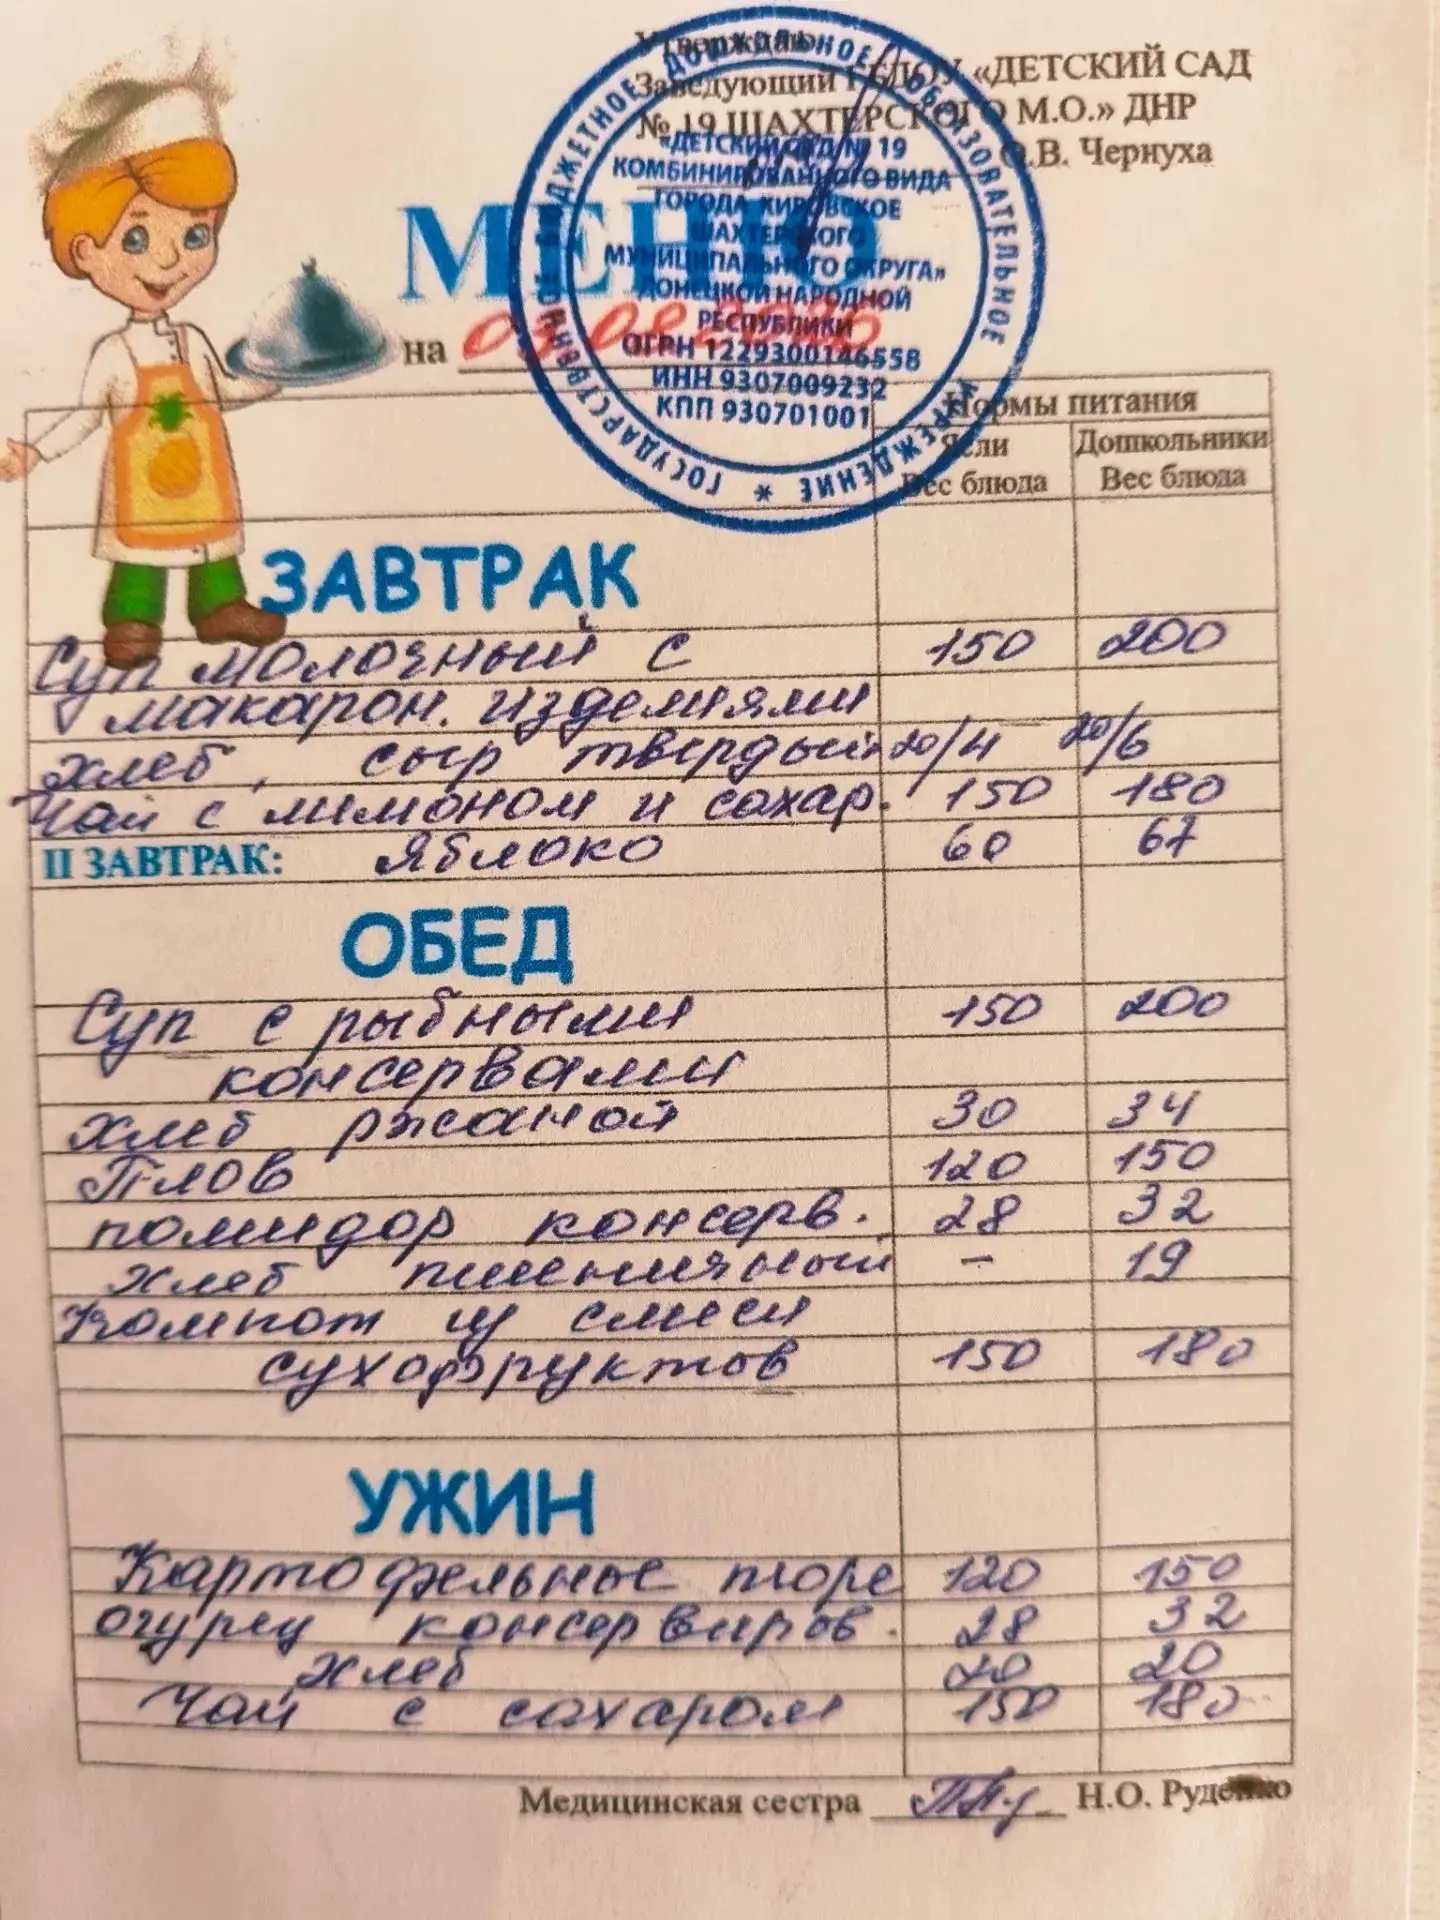 Утверждаю
Заведующий ГБДОУ «ДЕТСКИЙ САД
№ 19 ШАХТЕРСКОГО М.О.» ДНР
О.В. Чернуха
ГОСУДАРСТВЕННОЕ БЮДЖЕТНОЕ ДОШКОЛЬНОЕ ОБРАЗОВАТЕЛЬНОЕ УЧРЕЖДЕНИЕ *
«ДЕТСКИЙ САД № 19
КОМБИНИРОВАННОГО ВИДА
ГОРОДА КИРОВСКОЕ
ШАХТЕРСКОГО
МУНИЦИПАЛЬНОГО ОКРУГА»
ДОНЕЦКОЙ НАРОДНОЙ
РЕСПУБЛИКИ
ОГРН 1229300146558
ИНН 9307009232
КПП 930701001
МЕНЮ
на
Нормы питания
Ясли Дошкольники
Вес блюда Вес блюда
ЗАВТРАК
Суп молочный с 150 200
макарон. изделиями
хлеб, сыр твердый 20/4 20/6
Чай с лимоном и сахар. 150 180
II ЗАВТРАК: Яблоко 60 67
ОБЕД
Суп с рыбными 150 200
консервами
хлеб ржаной 30 34
Плов 120 150
помидор консерв. 28 32
хлеб пшеничный - 19
Компот из смеси
сухофруктов 150 180
УЖИН
Картофельное пюре 120 150
огурец консервиров. 28 32
хлеб 20 20
Чай с сахаром 150 180
Медицинская сестра Н.О. Руденко